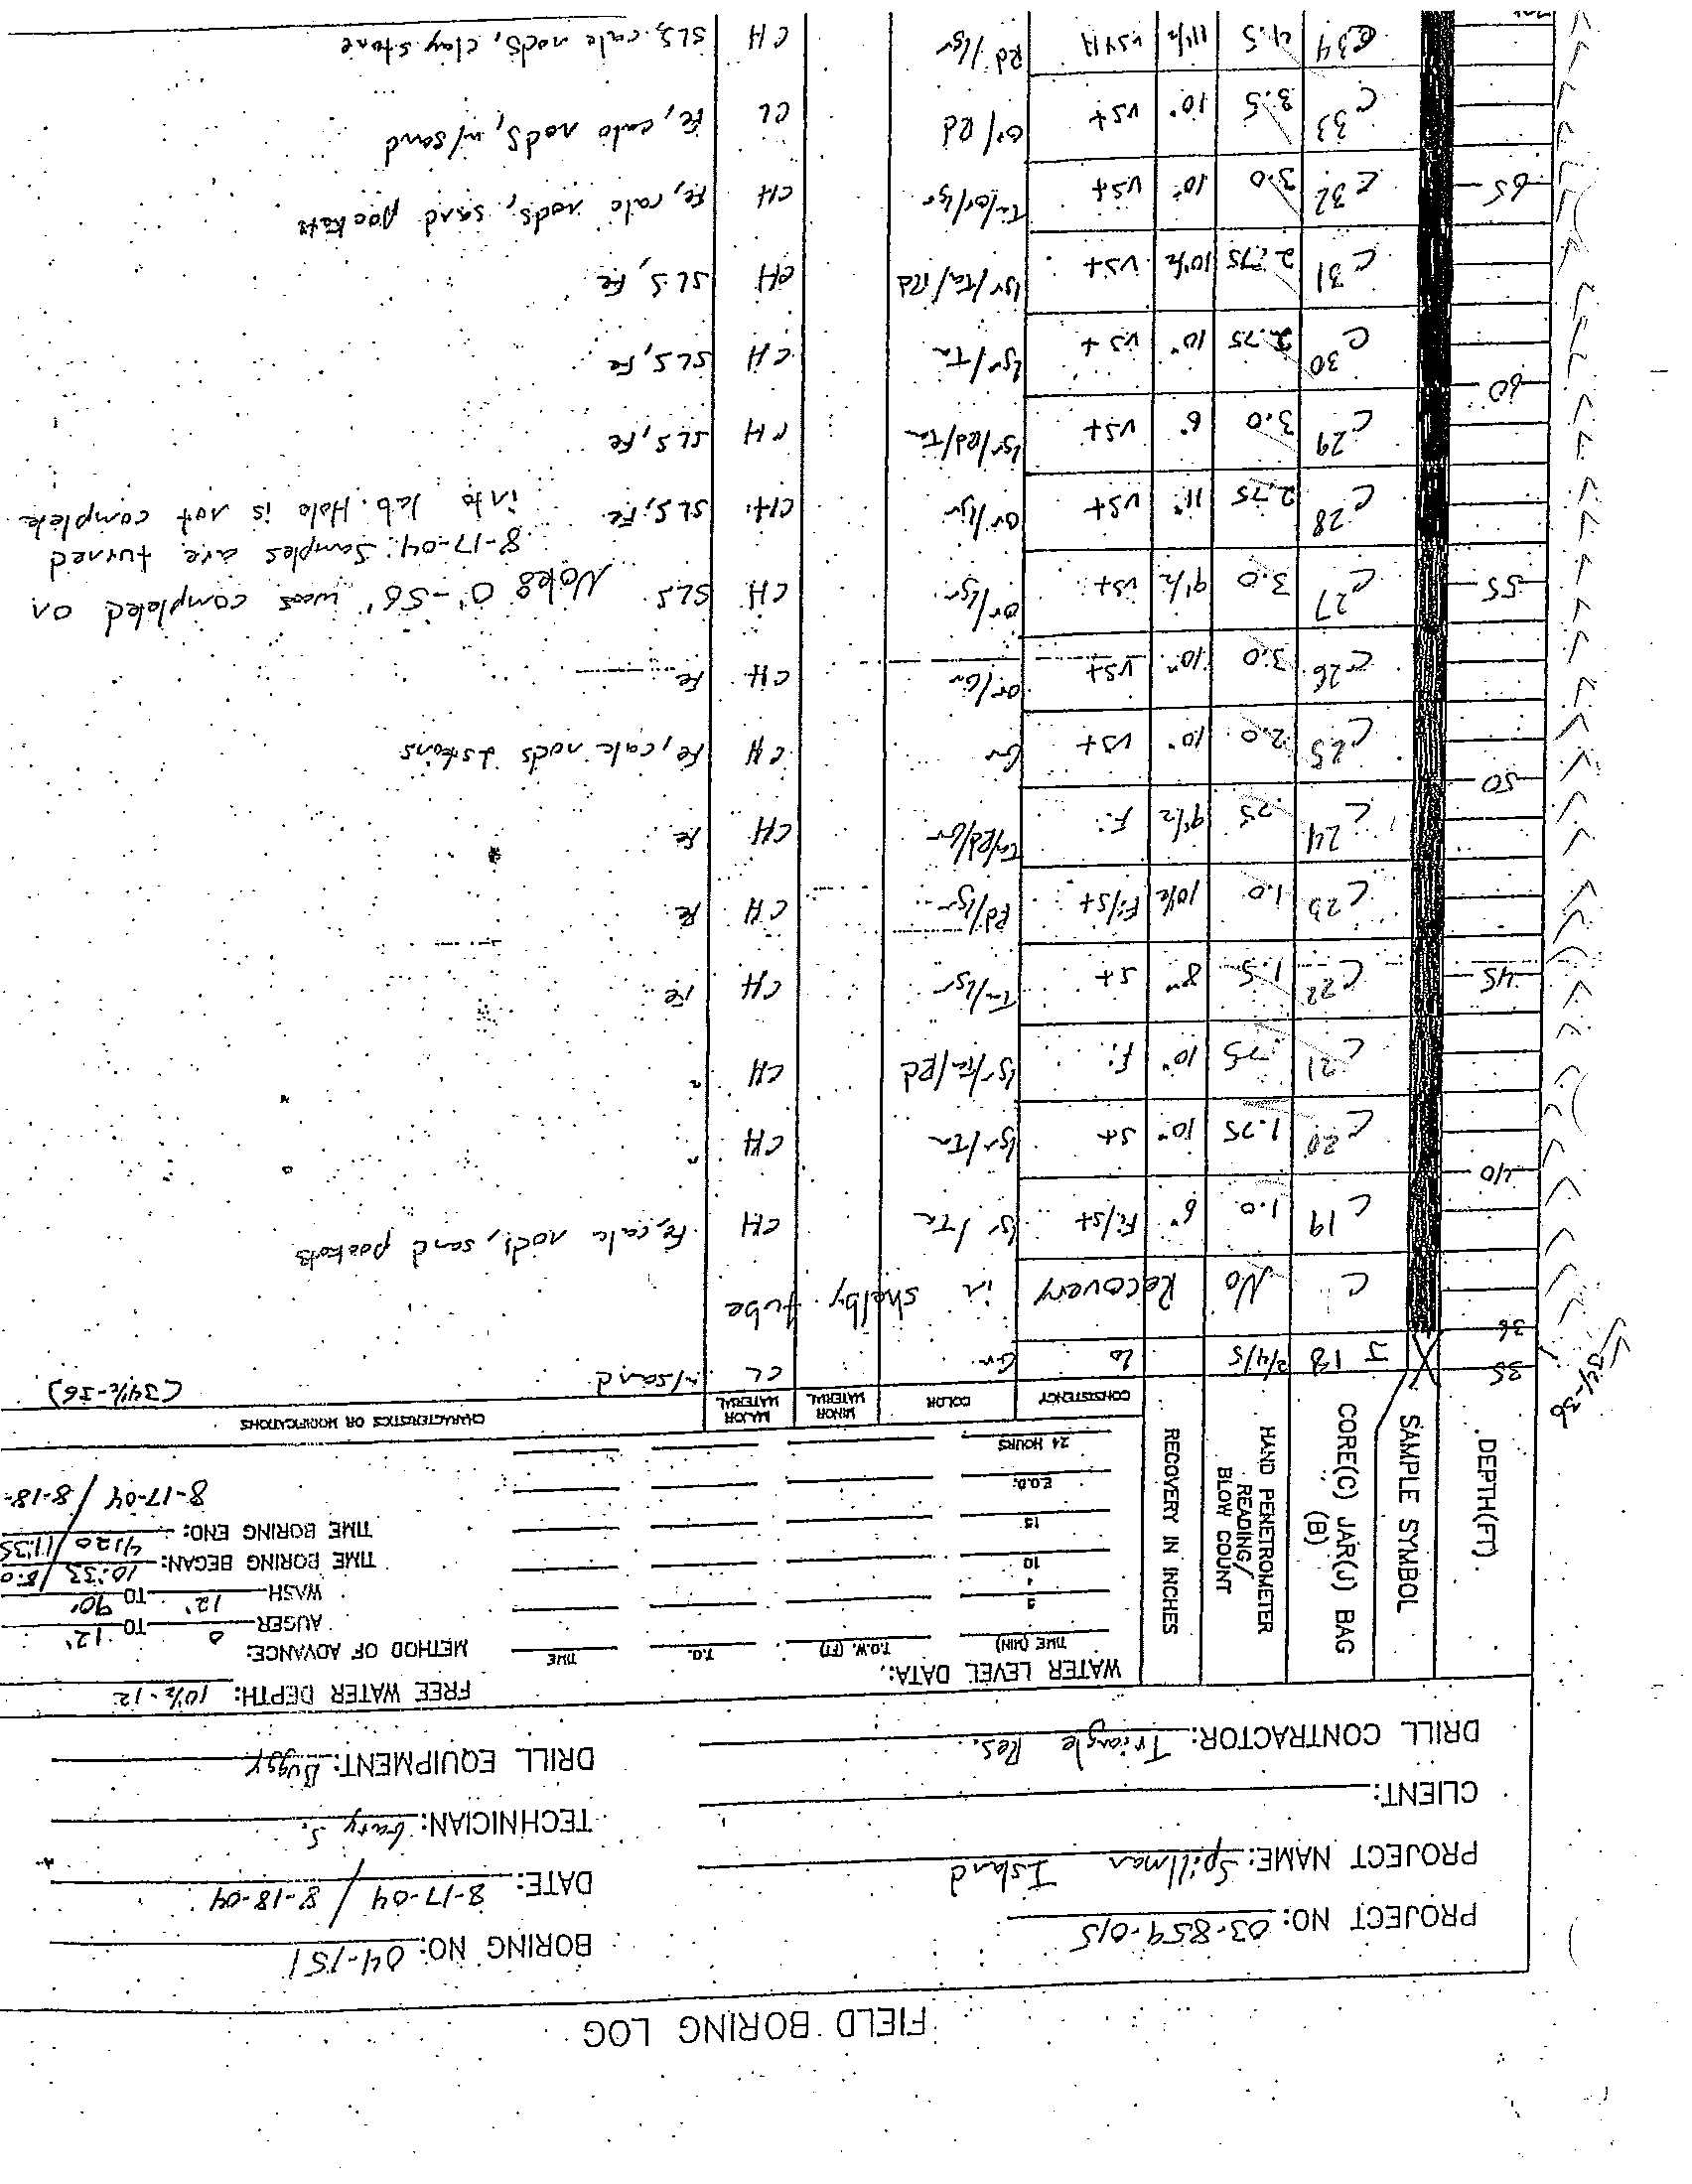 FIELD BORING LOG
PROJECT NO: 03-859-015 BORING NO: 04-151
PROJECT NAME: Spillman Island DATE: 8-17-04 / 8-18-04
CLIENT: TECHNICIAN: Gary S.
DRILL CONTRACTOR: Triangle Res. DRILL EQUIPMENT: Buggy
DEPTH(FT)
SAMPLE SYMBOL
CORE(C) JAR(J) BAG (B)
HAND PENETROMETER READING/ BLOW COUNT
RECOVERY IN INCHES
WATER LEVEL DATA: FREE WATER DEPTH: 10½-12
TIME (MIN) T.O.W. (FT) T.D. TIME METHOD OF ADVANCE:
AUGER 0 TO 12'
WASH 12' TO 90'
10 TIME BORING BEGAN: 10:33
15 TIME BORING END: 4:20 / 11:35
E.O.D. 8-17-04 / 8-18-
24 HOURS
CONSISTENCY COLOR MINOR MATERIAL MAJOR MATERIAL CHARACTERISTICS OR MODIFICATIONS
35 J 18 2/4/5 Lo Gr CL w/sand (34½-36)
36 C No Recovery in shelby tube
C 19 1.0 6" Fi/St lgr/Tn CH Fe, calc nods, sand pockets
40 C 20 1.75 10" St lgr/Tn CH "
C 21 .75 10" Fi lgr/Tn/Rd CH "
45 C 22 1.5 8" St Tn/lgr CH Fe
C 23 1.0 10½ Fi/St Rd/lgr CH Fe
C 24 .75 9½ Fi Tn/Rd/Gr CH Fe
50 C 25 2.0 10" VSt Gr CH Fe, calc nods & stains
C 26 3.0 10" VSt Or/Gr CH Fe
55 C 27 3.0 9½ VSt Or/lgr CH SLS Note 0'-56' was completed on
8-17-04. Samples are turned
C 28 2.75 11" VSt Or/lgr CH SLS, Fe into lab. Hole is not complete
C 29 3.0 6" VSt lgr/Rd/Tn CH SLS, Fe
60 C 30 2.75 10" VSt lgr/Tn CH SLS, Fe
C 31 2.75 10½ VSt lgr/Tn/Rd CH SLS, Fe
65 C 32 3.0 10" VSt Tn/Or/lgr CH Fe, calc nods, sand pockets
C 33 3.5 10" VSt Or/Rd CL Fe, calc nods, w/sand
C 34 4.5 11½ VSt/H Rd/lgr CH SLS, calc nods, clay stone